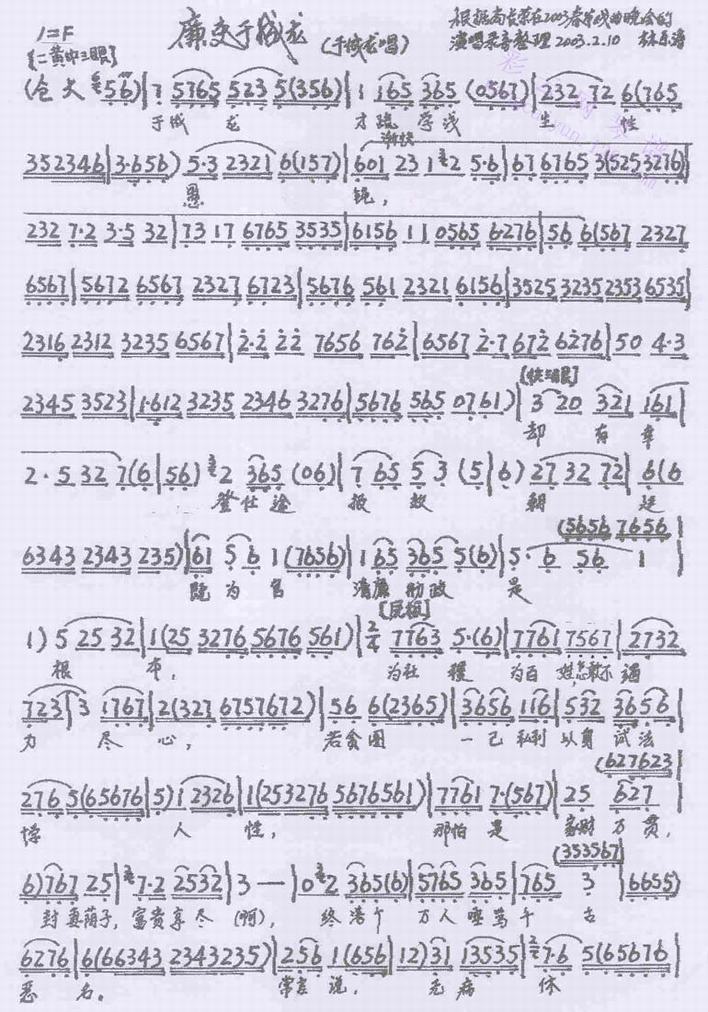 廉吏于成龙
(于成龙唱)
根据尚长荣在2003春节戏曲晚会的
演唱录音整理 2003.2.10
1=F
[二黄中三眼]
(仓 大 56)| 7 5765 523 5(356)| 1 165 365 (0567)|232 72 6(765
于成 龙 才疏 学浅 生 性
35234 6|3·656) 5·3 2321 6(157)|601 23 1 2 5·6|67 6765 3(5253276)|
愚 钝,
232 7·2 3·5 32|73 17 6765 3535|6156 11 0565 6276|56 6(567 2327
6567|5672 6567 2327 6723|5676 561 2321 6156|3525 3235 2353 6535|
2316 2312 3235 6567|2·2 22 7656 762|6567 2·7 672 6276|50 4·3
2345 3523|1·612 3235 2346 3276|5676 565 0761)|3 20 321 161|
[快三眼]
却 有 幸
2·5 32 7(6|56) 2 365 (06)|7 65 5 3 (5|6) 27 32 72|6(6
登仕途 报 效 朝 廷
(5656 7656
6343 2343 235)|61 5 6 1(7656)|1 65 365 5(6)|5· 6 56 1
既 为 官 清廉 勤政 是
[原板]
1) 5 25 32|1(25 3276 5676 561)|2/4 7763 5·(6)|7761 7567|2732
根 本, 为社 稷 为百 姓怎敢不 竭
723|3 1767|2(327 6757672)|56 6(2365)|3656 116|532 3656|
力 尽 心, 若贪图 一己 私利 以身 试法
(627623
276 5(65676|5) 1 2326|1(253276 5676561)|7761 7·(567)|25 627
悖 人 性, 那怕 是 家财 万贯,
(353567
6)767 25|7·2 2532|3 —|0 2 365(6)|5765 365|765 3|6655)
封妻荫子, 富贵享尽 (啊), 终落个 万人 唾骂 千 古
6276|6(66343 2343235)|256 1(656|12)31 13535|7·6 5(65676
恶 名。 常言 说, 无病 体